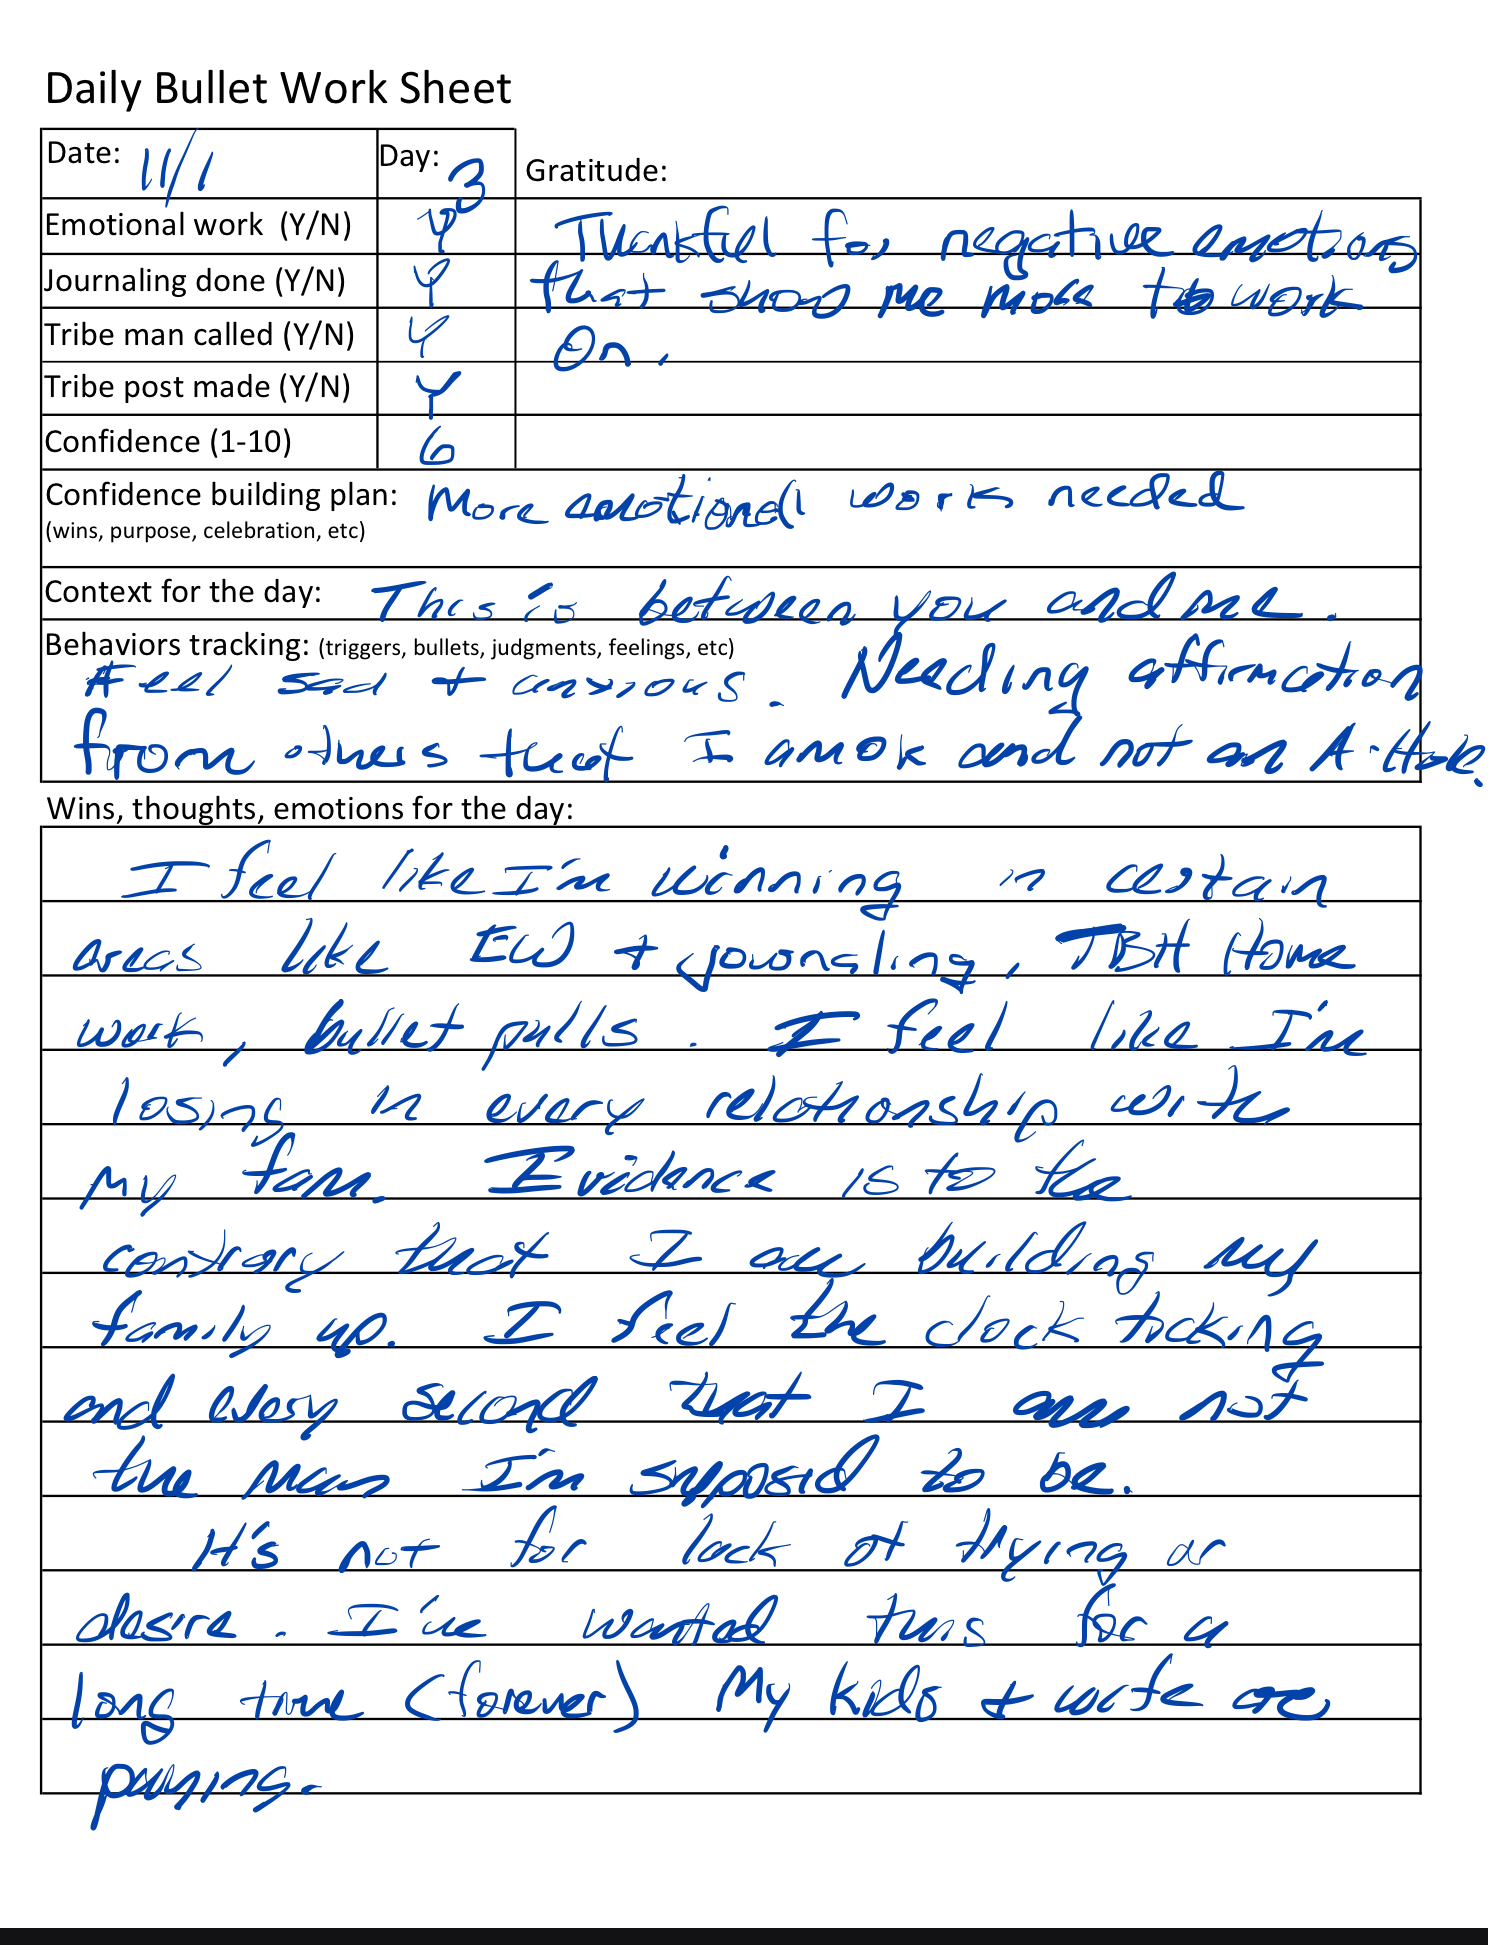 Daily Bullet Work Sheet
Date: 11/1 Day: 3 Gratitude:
Emotional work (Y/N) Y Thankful for negative emotions
Journaling done (Y/N) Y that show me more to work
Tribe man called (Y/N) Y On.
Tribe post made (Y/N) Y
Confidence (1-10) 6
Confidence building plan: More emotional work needed
(wins, purpose, celebration, etc)
Context for the day: This is between you and me.
Behaviors tracking: (triggers, bullets, judgments, feelings, etc)
Feel sad + anxious. Needing affirmation
from others that I am ok and not an A-Hole.
Wins, thoughts, emotions for the day:
I feel like I'm winning in certain
areas like EW + journaling, TBH Home
work, bullet pulls. I feel like I'm
losing in every relationship with
my fam. Evidence is to the
contrary that I am building my
family up. I feel the clock ticking
and every second that I am not
the man I'm supposed to be.
It's not for lack of trying or
desire. I've wanted this for a
long time (forever) My kids + wife are
paying.